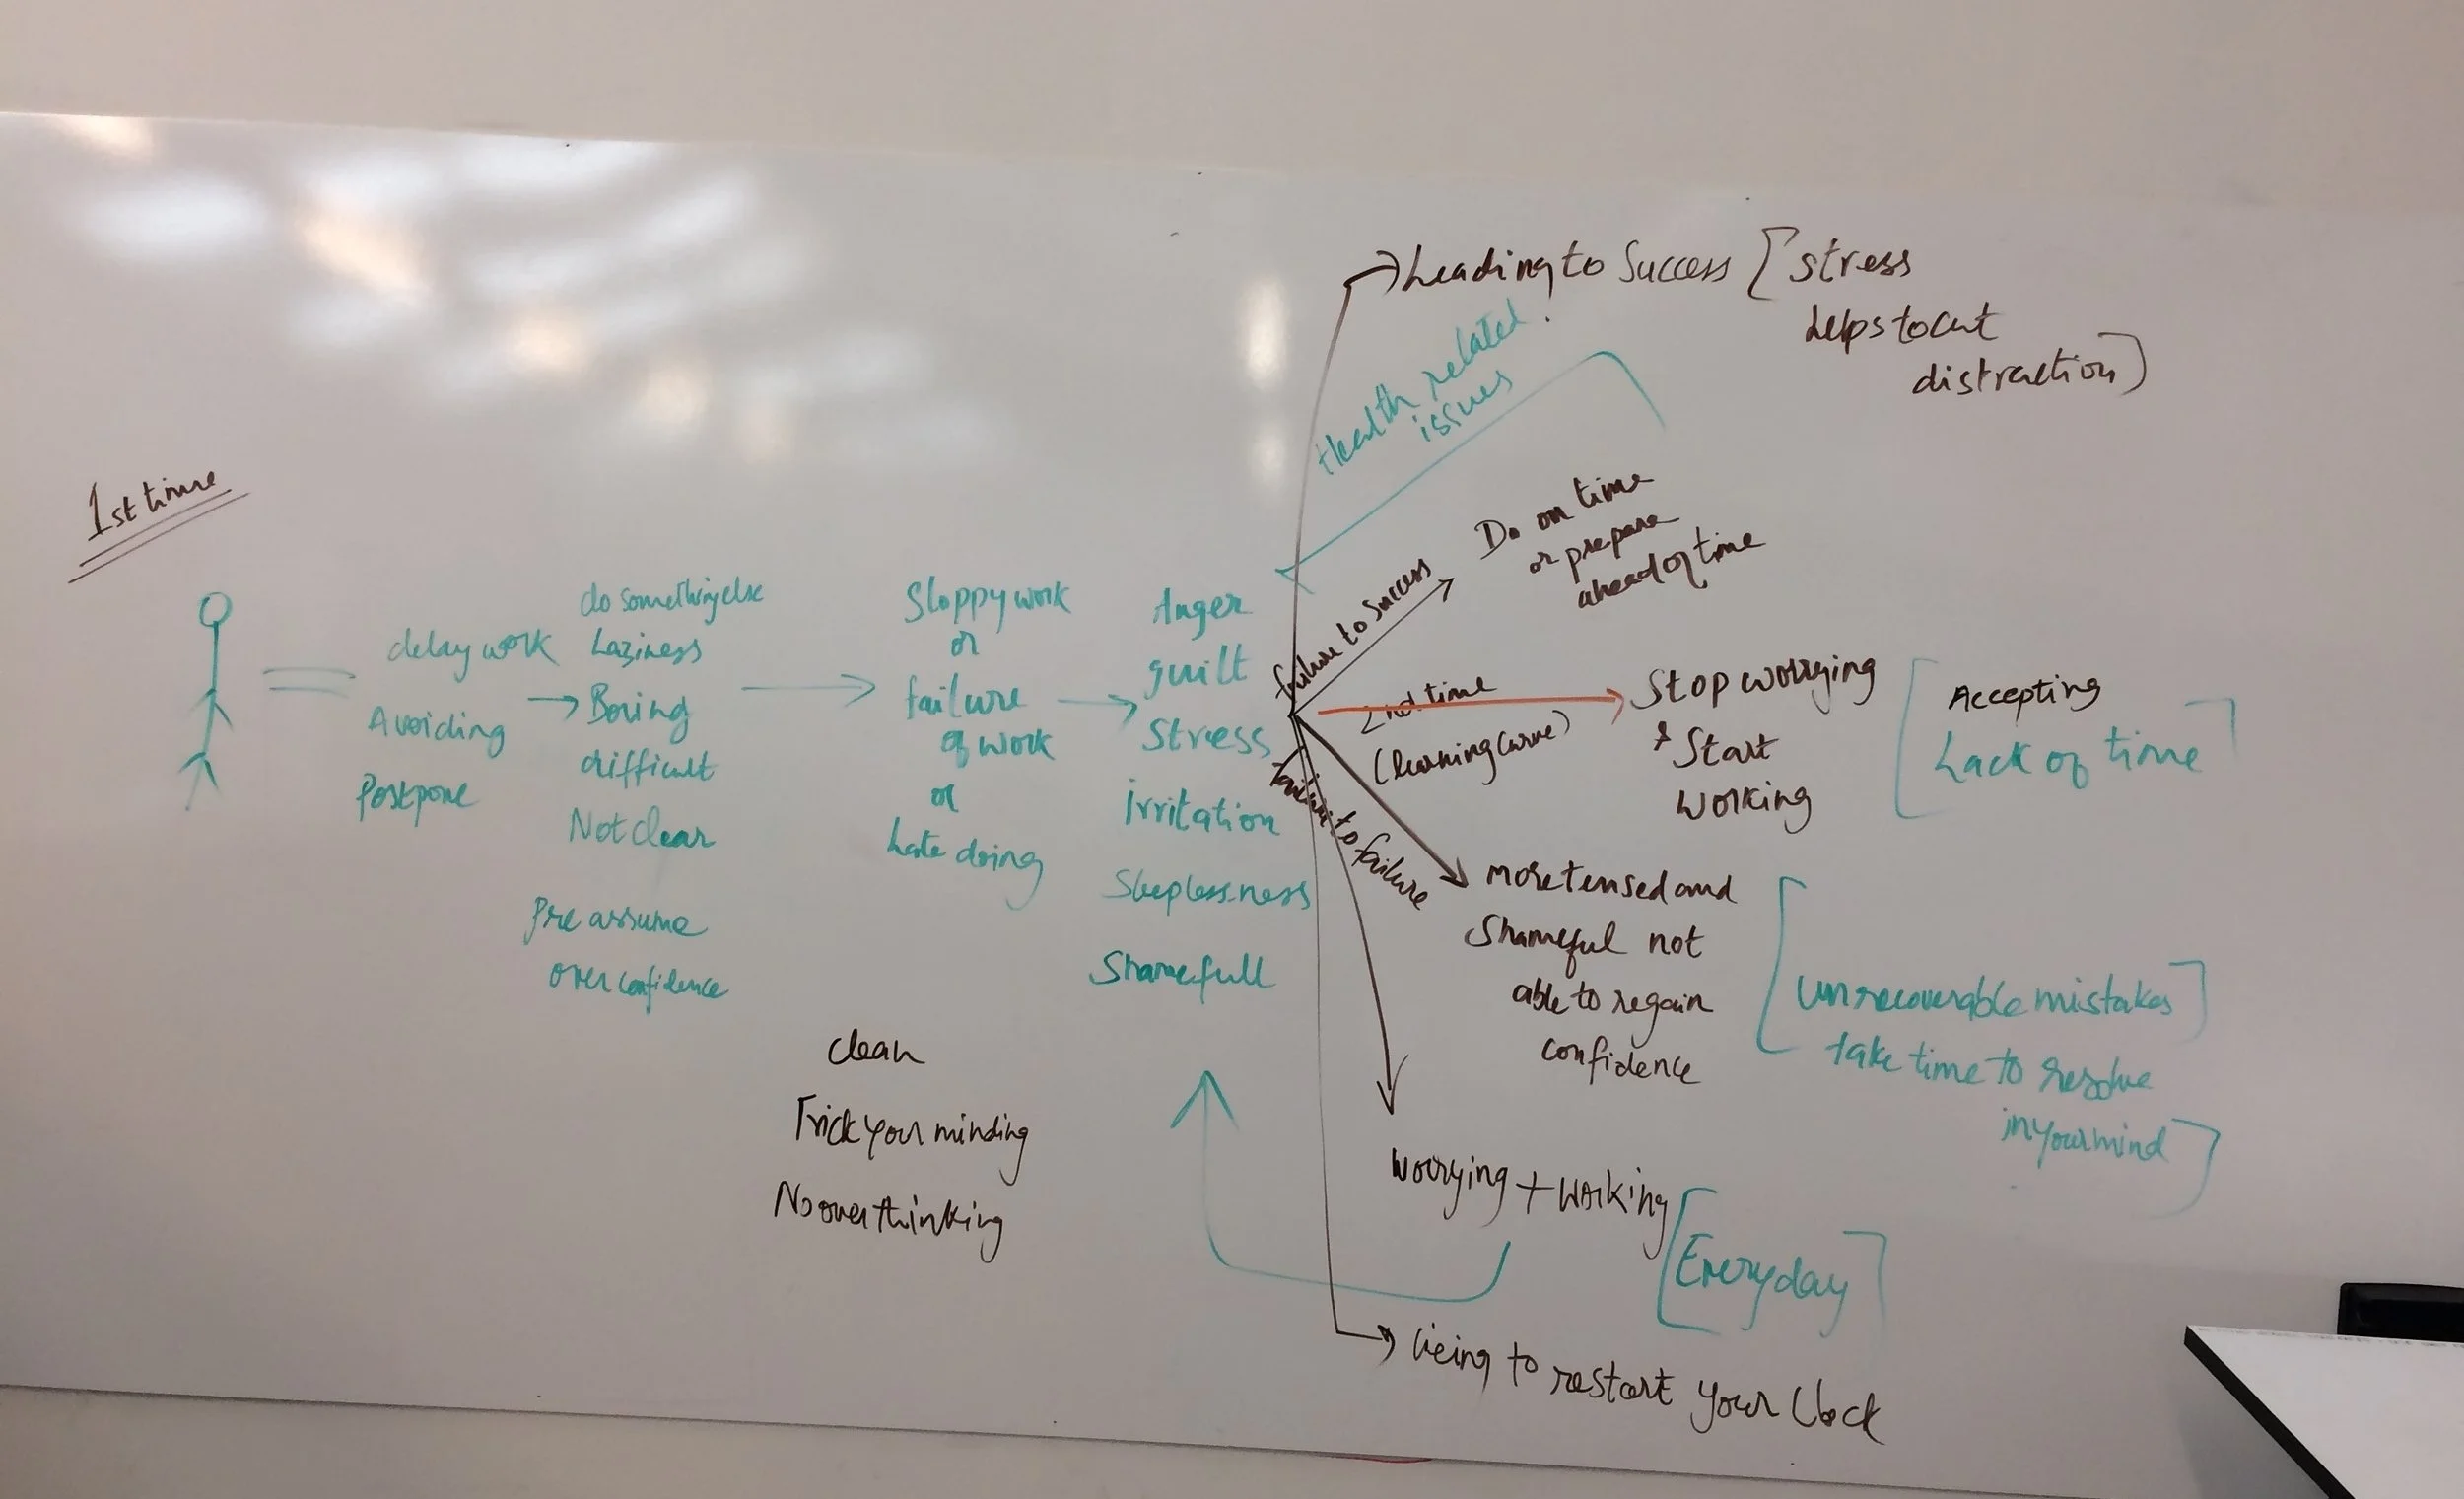 1st time
delay work
Avoiding
Postpone
do something else
Laziness
Boring
difficult
Not clear
Pre assume
over confidence
Sloppy work
or
failure
of work
or
Late doing
Anger
guilt
Stress
irritation
Sleplessness
Shamefull
clean
Trick your minding
No overthinking
Leading to Success [stress
helps to cut
distraction]
Health related
issues
failure to Success
Do on time
or prepare
ahead of time
2nd time
(learning curve)
Stop worrying
& Start
working
[Accepting
Lack of time]
failure to failure
more tensed and
Shameful not
able to regain
confidence
[unrecoverable mistakes]
take time to resolve
in your mind]
Worrying + Working
[Everyday]
to restart your Clock